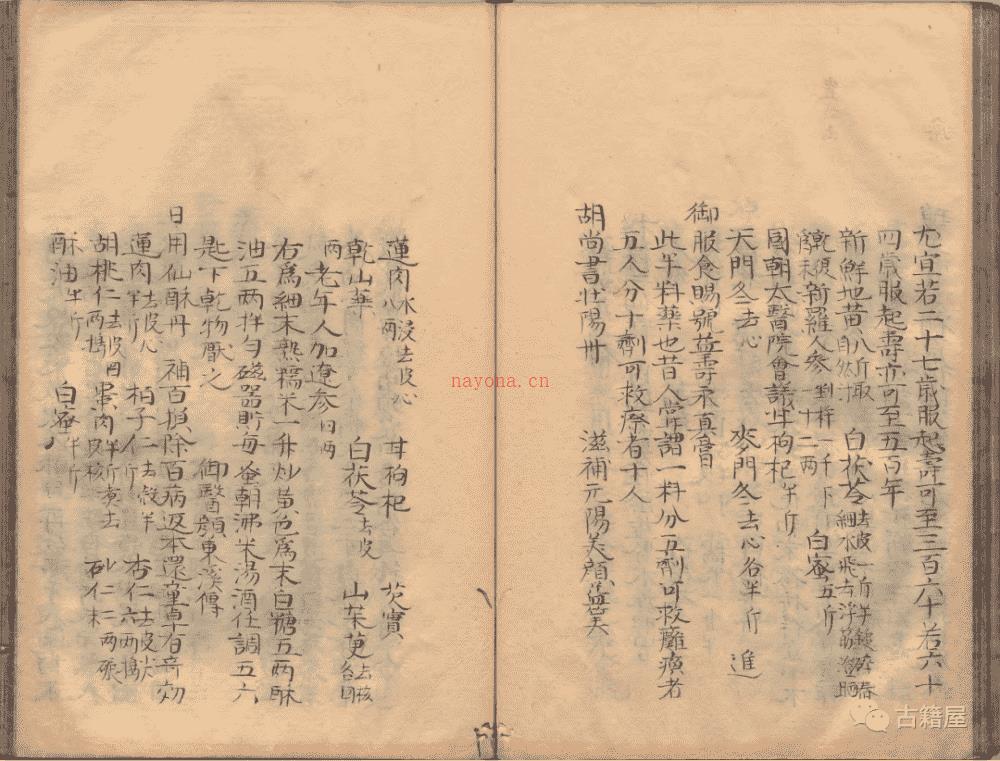 尤宜若二十七歳服起壽可至三百六十若六十
四歳服起壽亦可至五百年
新鮮地黄八斤取自然汁 白茯苓去皮一斤半
細水飛去浮筋澄晒
乾復新羅人參 一千下 一十二兩 白蜜五斤
國朝太醫院會議 枸杞半斤
天門冬去心 麥門冬去心各半斤 進
御服食賜號益壽永真膏
此半料藥也昔人嘗謂一料分五劑可救癱瘓者
五人分十劑可救療者十人
胡尚書壯陽丹 滋補元陽美顔益
蓮肉八兩水浸去皮心 甘枸杞 芡實
乾山藥 白茯苓去皮 山茱萸去核各四
兩 老年人加遼參四兩
右爲細末熟糯米一升炒黄色爲末白糖五兩酥
油五兩拌勻磁器貯每蚤朝沸米湯酒任調五六
匙下乾物厭之 御醫顔東溪傳
日用仙酥丹 補百損除百病返本還童卓有奇効
蓮肉去皮心半斤 柏子仁去殼半斤 杏仁去皮尖六兩搗
胡桃仁去皮四兩搗 棗肉半斤煮去皮核 砂仁二兩
酥油半斤 白蜜半斤
nayona.cn
古籍屋